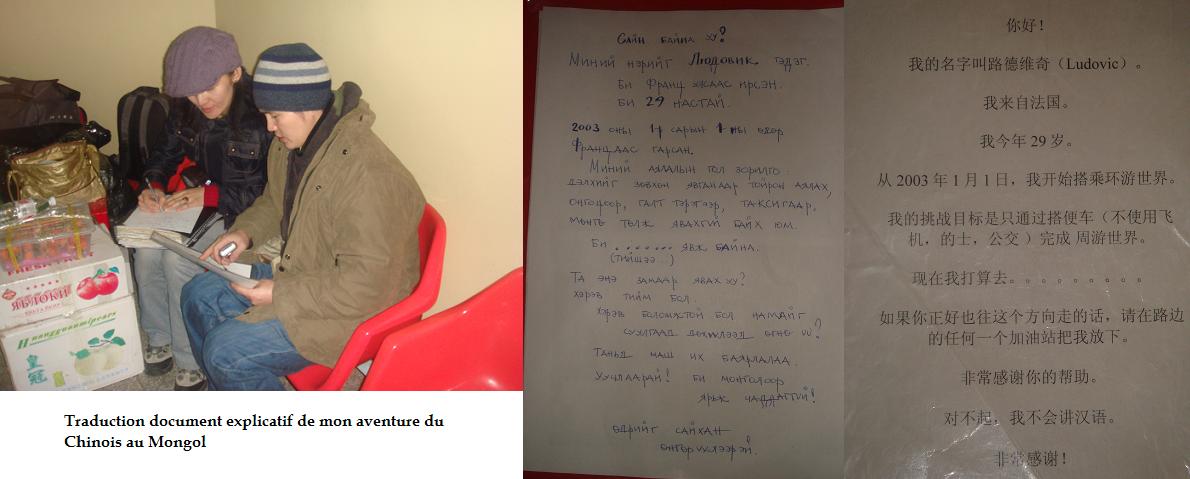 ЯБЛОКИ
皇
冠
Traduction document explicatif de mon aventure du
Chinois au Mongol
САЙН БАЙНА УУ?
Миний нэрийг Людовик гэдэг.
Би Франц улсаас ирсэн.
Би 29 настай.
2003 оны 1-р сарын 1-ны өдөр
Францаас гарсан.
Миний аялалын гол зорилго
дэлхийг зөвхөн явганаар тойрон аялах,
онгоцоор, галт тэргээр, таксигаар,
мөнгө төлж явахгүй байх юм.
Би ........ явж байна.
(тийшээ...)
Та энэ замаар явах уу?
хэрэв тийм бол
хэрэв боломжтой бол намайг
суулгаад дөхүүлээд өгнө үү?
Таньд маш их баярлалаа.
Уучлаарай! Би монголоор
ярьж чаддаггүй!
Өдрийг сайхан
өнгөрүүлээрэй.
你好！
我的名字叫路德维奇（Ludovic）。
我来自法国。
我今年 29 岁。
从 2003 年 1 月 1 日，我开始搭乘环游世界。
我的挑战目标是只通过搭便车（不使用飞
机，的士，公交 ）完成 周游世界。
现在我打算去。。。。。。。。。
如果你正好也往这个方向走的话，请在路边
的任何一个加油站把我放下。
非常感谢你的帮助。
对不起，我不会讲汉语。
非常感谢！